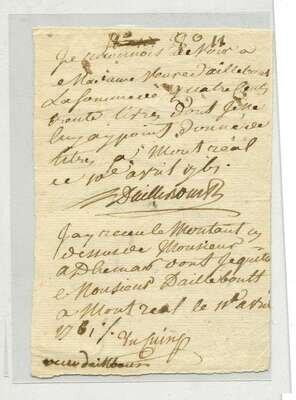 Je reconnois devoir a
Madame veuve Daillebout
La somme de quatre cent
trente Livres dont je ne
luy ay point donné de
titre a Montreal
ce 10e avril 1761
Daillebout
J'ay receu le montant cy
dessus de Monsieur
Adhemar dont je quitte
Monsieur Dailleboutt
a Montreal le 11e avril
1761
veuve daillebout